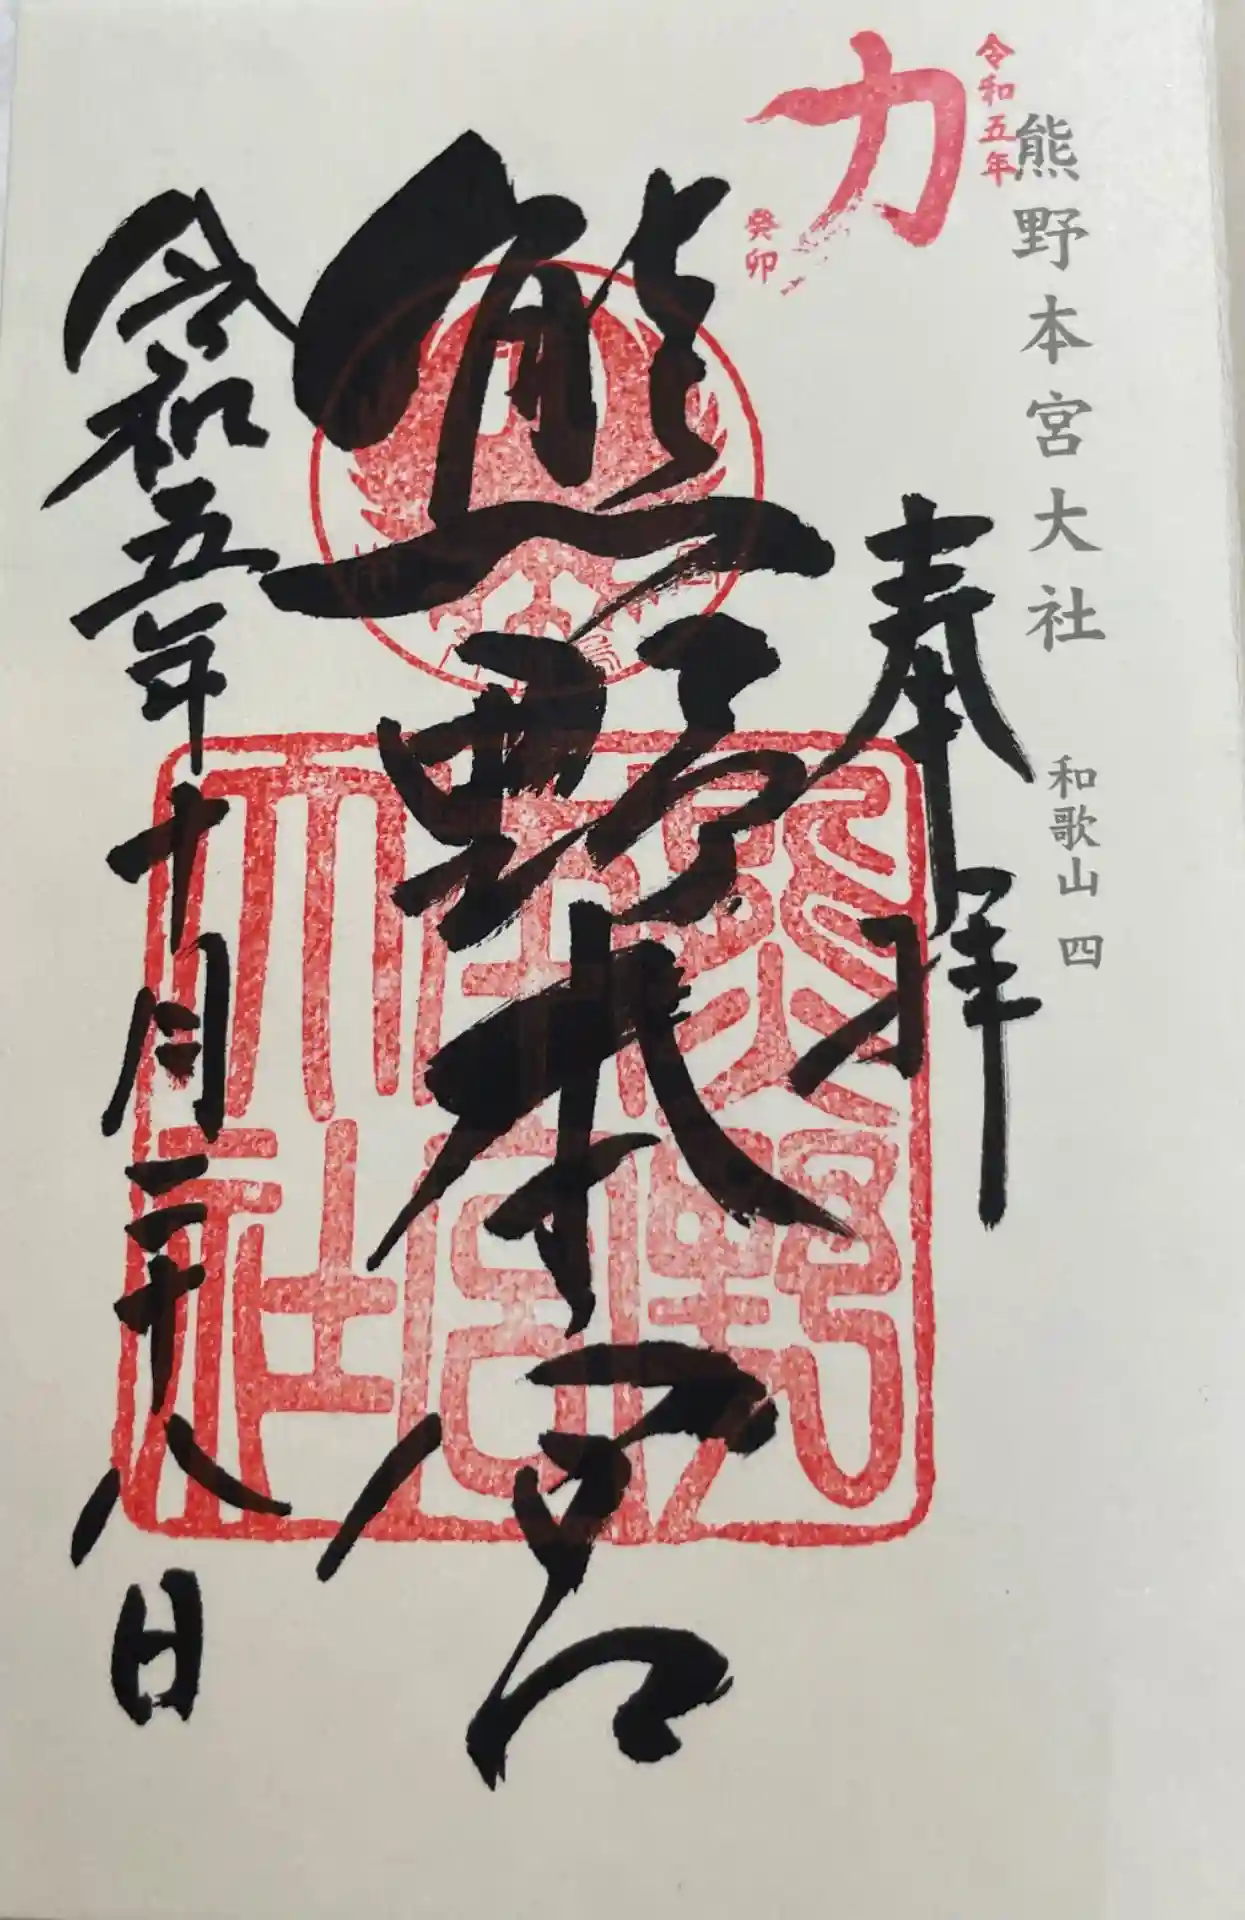 熊野本宮大社 和歌山 四
令和五年
力
癸卯
奉拝
熊野本宮
熊野本宮大社
令和五年十月二十八日